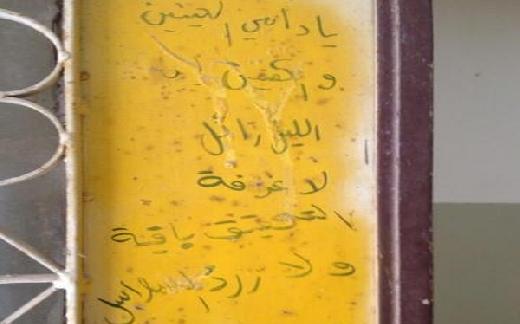 يا دامي العينين
و الكفين إن
الليل زائل
لا غرفة
التحقيق باقية
و لا زرد السلاسل